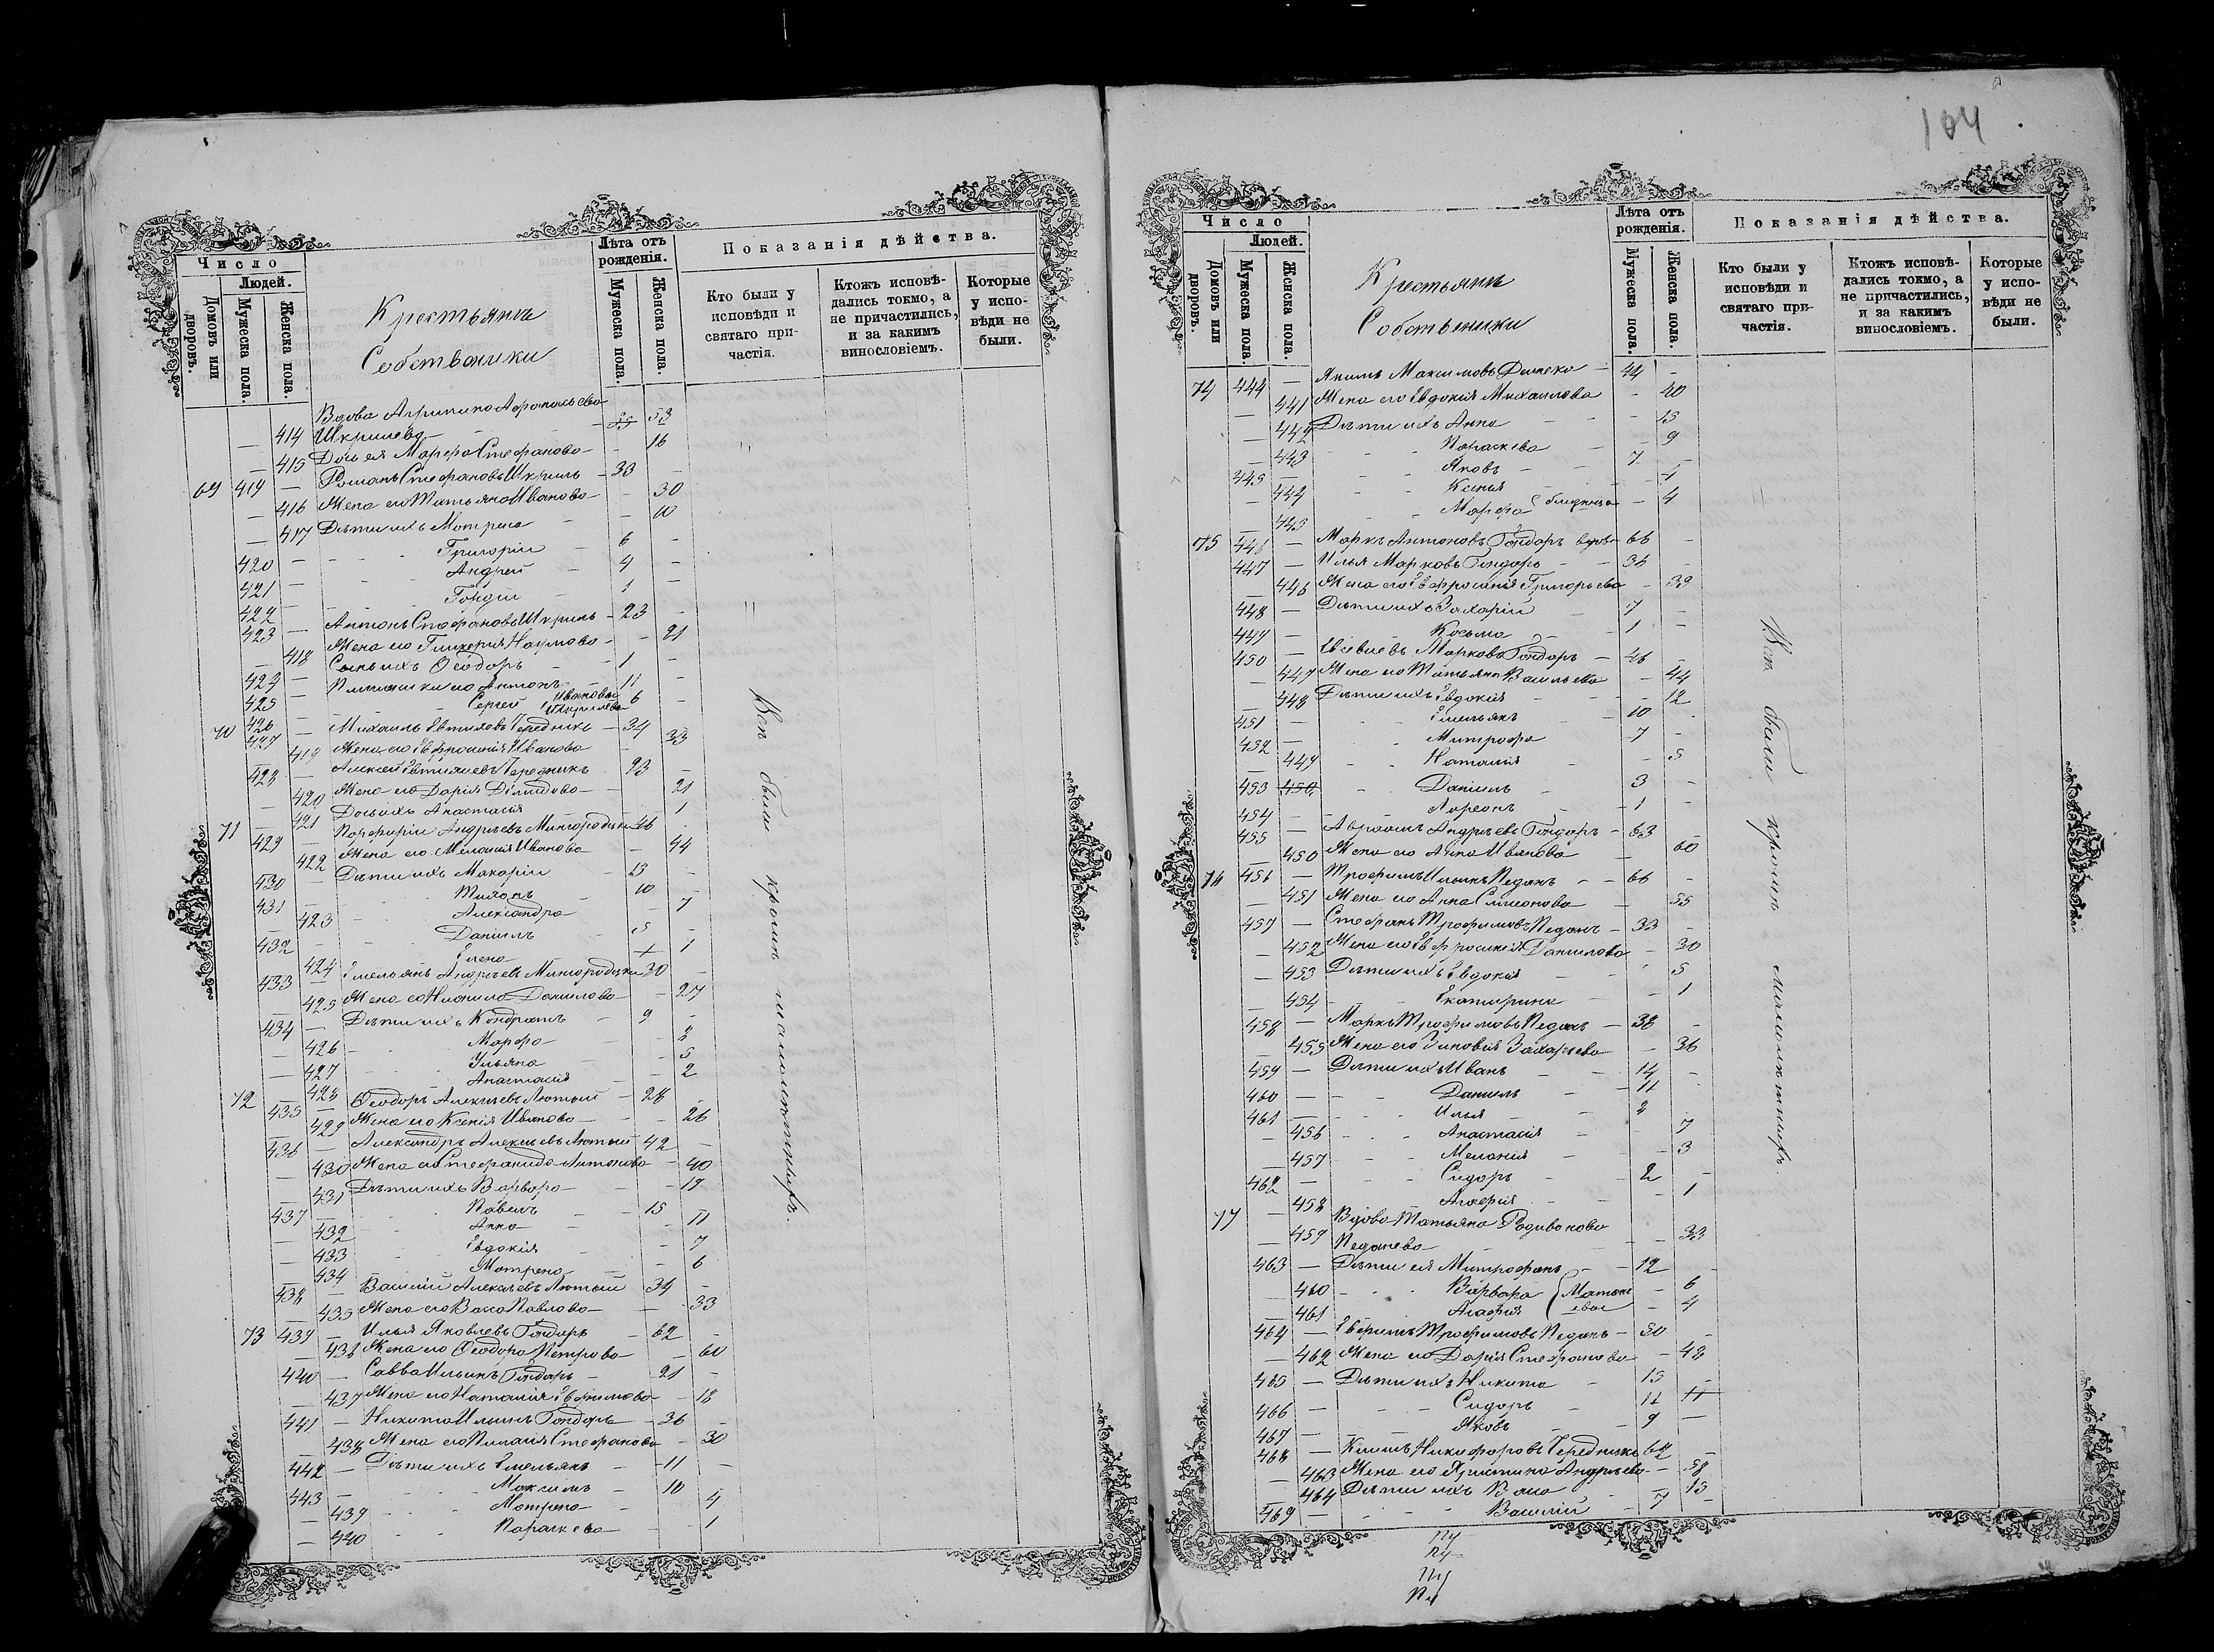 104
Число
Людей.
Домовъ или дворовъ.
Мужеска пола.
Женска пола.
Крестьянъ
Собственики
Лѣта отъ рожденія.
Мужеска пола.
Женска пола.
Показанія дѣйства.
Кто были у исповѣди и святаго причастія.
Ктожъ исповѣдались токмо, а не причастились, и за какимъ винословіемъ.
Которые у исповѣди не были.
Вдова Агрипина
414 Шкрилева 53
415 Дочь ея Марфа Стефанова 16
69 419 — Романъ Стефановъ Шкриль 33 -
— 416 Жена его Татьяна Иванова - 30
— 417 Дѣти ихъ Мотрена - 10
420 — Григорій 6 -
421 — Андрей 4 -
422 — Гордій 1 -
423 — Антонъ Стефановъ Шкриль 23 -
— 418 Жена его Гликерія Наумова - 21
424 — Сынъ ихъ Ѳеодоръ 1 -
425 — Племяники его Антонъ 11 -
426 — Сергей Ивановы 6 -
70 427 — Михаилъ Евтихіевъ Чередникъ 34 -
— 419 Жена его Евфросинія Иванова - 33
428 — Алексей Евтихіевъ Чередникъ 23 -
— 420 Жена его Дарія - 21
— 421 Дочь ихъ Анастасія - 1
71 429 — Порфирій Андреевъ 46 -
— 422 Жена его Меланія Иванова - 44
430 — Дѣти ихъ Макарій 13 -
431 — Тихонъ 10 -
— 423 Александра - 7
432 — Даніилъ 5 -
— 424 Елена - 1
433 — Емельянъ Андреевъ 30 -
— 425 Жена его Данилова - 27
434 — Дѣти ихъ Кондратъ 9 -
— 426 Марфа - 8
— 427 Ульяна - 5
— 428 Анастасія - 2
72 435 — Ѳеодоръ Алексѣевъ Лютый 28 -
— 429 Жена его Ксенія Иванова - 26
436 — Александръ Алексѣевъ Лютый 42 -
— 430 Жена его Стефанида Антонова - 40
— 431 Дѣти ихъ Варвара - 19
437 — Павелъ 15 -
— 432 Анна - 11
— 433 Евдокія - 7
— 434 Мотрена - 6
438 — Василій Алексѣевъ Лютый 34 -
— 435 Жена его Васса Павлова - 33
73 439 — Илья Яковлевъ Гондарь 62 -
— 436 Жена его Ѳеодора Петрова - 60
440 — Савва Ильинъ Гондарь 21 -
— 437 Жена его Наталія Евфимова - 18
441 — Никита Ильинъ Гондарь 36 -
— 438 Жена его Пелагія Стефанова - 30
442 — Дѣти ихъ Емельянъ 11 -
443 — Максимъ 10 -
— 439 Мотрена - 4
— 440 Параскева - 1
Всѣ были кромѣ малолѣтнихъ.
Число
Людей.
Домовъ или дворовъ.
Мужеска пола.
Женска пола.
Крестьянъ
Собственики
Лѣта отъ рожденія.
Мужеска пола.
Женска пола.
Показанія дѣйства.
Кто были у исповѣди и святаго причастія.
Ктожъ исповѣдались токмо, а не причастились, и за какимъ винословіемъ.
Которые у исповѣди не были.
74 444 — Якимъ Максимовъ 44 -
— 441 Жена его Евдокія Михаилова - 40
— 442 Дѣти ихъ Анна - 13
— 443 Параскева - 9
445 — Яковъ 7 -
— 444 Ксенія - 4
— 445 Марфа близнецы - 4
75 446 — Маркъ Антоновъ Гондарь вдовъ 66 -
447 — Илья Марковъ Гондарь 36 -
— 446 Жена его Евфросинія Григорьева - 39
448 — Дѣти ихъ Захарій 7 -
449 — Косьма 1 -
450 — Марковъ Гондарь 46 -
— 447 Жена его Татьяна Васильева - 44
— 448 Дѣти ихъ Евдокія - 12
451 — Емельянъ 10 -
452 — Митрофа 7 -
— 449 Наталія - 5
453 450 Даніилъ 3 -
454 — 1 -
455 — Авраамъ Андреевъ Гондарь 63 -
— 450 Жена его Анна Иванова - 60
76 456 — Трофимъ Ильинъ Педанъ 66 -
— 451 Жена его Анна Симонова - 55
457 — Стефанъ Трофимовъ Педанъ 33 -
— 452 Жена его Евфросинія Данилова - 30
— 453 Дѣти ихъ Евдокія - 5
— 454 Екатерина - 1
458 — Маркъ Трофимовъ Педанъ 38 -
— 455 Жена его Зиновія Захарьева - 36
459 — Дѣти ихъ Иванъ 14 -
460 — Даніилъ 11 -
461 — Илья 8
— 456 Анастасія - 7
— 457 Меланія - 3
462 — Сидоръ 2 -
— 458 Агафія - 1
77 — 459 Вдова Татьяна Родивонова
Педанева - 33
463 — Дѣти ея Митрофанъ 12 -
— 460 Варвара - 6
— 461 Агафія - 4
464 — Евфимъ Трофимовъ Педанъ 50 -
— 462 Жена его Дарія Стефанова - 48
465 — Дѣти ихъ Никита 15 -
466 — Сидоръ 11 11
467 — Яковъ 9 —
468 — Климъ Никифоровъ Чередникъ 62 -
— 463 Жена его Христина Андреева - 58
— 464 Дѣти ихъ - 15
469 — Василій 7 -
Всѣ были кромѣ малолѣтнихъ.